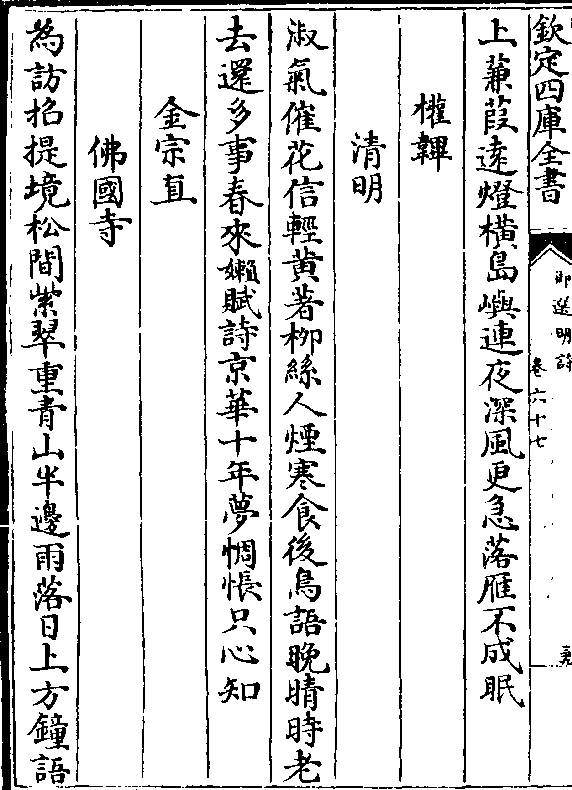 欽定四庫全書
御選明詩
卷六十七
上蒹葭遠燈橫島嶼連夜深風更急落雁不成眠
權韠
清明
淑氣催花信輕黄著柳絲人煙寒食後鳥語晚晴時老
去還多事春來嬾賦詩京華十年夢惆悵只心知
金宗直
佛國寺
為訪招提境松間紫翠重青山半邊雨落日上方鐘語